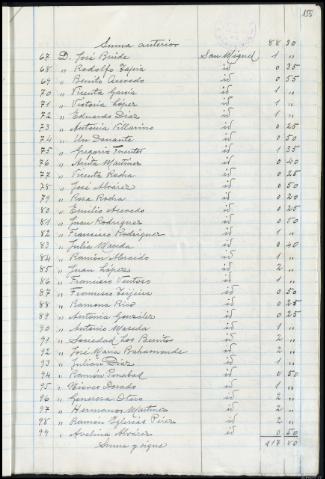 155
Suma anterior 88 30
67 D. José Bríide San Miguel 1 "
68 " Rodolfo Tapia id 0 25
69 " Benito Acevedo id 0 55
70 " Vicenta García id 1 "
71 " Victoria López id 1 "
72 " Eduardo Diaz id 1 "
73 " Antonia Villarino id 0 25
74 " Un Donante id 0 50
75 " Gregorio Fuentes id 1 35
76 " Anita Martinez id 0 40
77 " Vicenta Rodra id 0 25
78 " José Alvárez id 0 50
79 " Rosa Rodra id 0 20
80 " Emilio Acevedo id 0 25
81 " Juan Rodriguez id 0 50
82 " Francisco Rodriguez id 1 "
83 " Julia Maseda id 0 40
84 " Ramón Abraido id 1 "
85 " Juan López id 2 "
86 " Francisco Ventoso id 1 "
87 " Francisco Teijeiro id 0 50
88 " Ramona Rico id 0 25
89 " Antonia González id 0 25
90 " Antonio Maseda id 1 "
91 " Sociedad Los Benitos id 2 "
92 " José Maria Bahamonde id 2 "
93 " Julian Diaz id 1 "
94 " Ramón Penabad id 0 50
95 " Dorado id 1 "
96 " Generosa Otero id 2 "
97 " Hermanos Martinez id 2 "
98 " Ramón Iglesias Pérez id 2 "
99 " Avelina Alvárez id 0 50
Suma y sigue 117 80